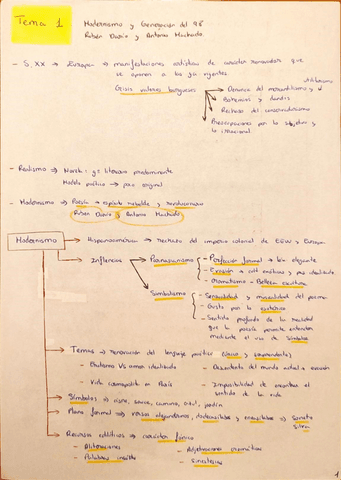 Tema 1
Modernismo y Generación del 98
Rubén Darío y Antonio Machado.
- S. XX → Europa → manifestaciones artísticas de carácter renovador que
se oponen a las ya vigentes
Crisis valores burgueses
utilitarismo
Denuncia del mercantilismo y
Bohemios y dandis
Rechazo del conservadurismo
Preocupaciones por lo subjetivo y
lo irracional
- Realismo → Novela: género literario predominante
Modelo poético → poco original
- Modernismo → Poesía → espíritu rebelde y
Rubén Darío y Antonio Machado
Modernismo
→ Hispanoamérica → rechazo del imperio colonial de EEUU y Europa
→ Influencias
Parnasianismo
- Perfección formal → elegante
- Evasión → exóticas y idealizante
- Cromatismo - Belleza escultura
Simbolismo
- Sensorialidad y musicalidad del poema
- Gusto por lo esotérico
- Sentido profundo de la realidad
que la poesía permite entender
mediante el uso de símbolos
→ Temas → renovación del lenguaje poético (único y sorprendente)
- Erotismo VS amor idealizado
- Descontento del mundo actual → evasión
- Vida cosmopolita en París
- Imposibilidad de encontrar el
sentido de la vida
→ Símbolos → cisne, camino, azul, jardín
→ Plano formal → versos alejandrinos, dodecasílabos y eneasílabos → Soneto
Silva
→ Recursos estilísticos → carácter fónico
- Aliteraciones
- Adjetivaciones cromáticas
- Palabras insólitas
- Sinestesias
1